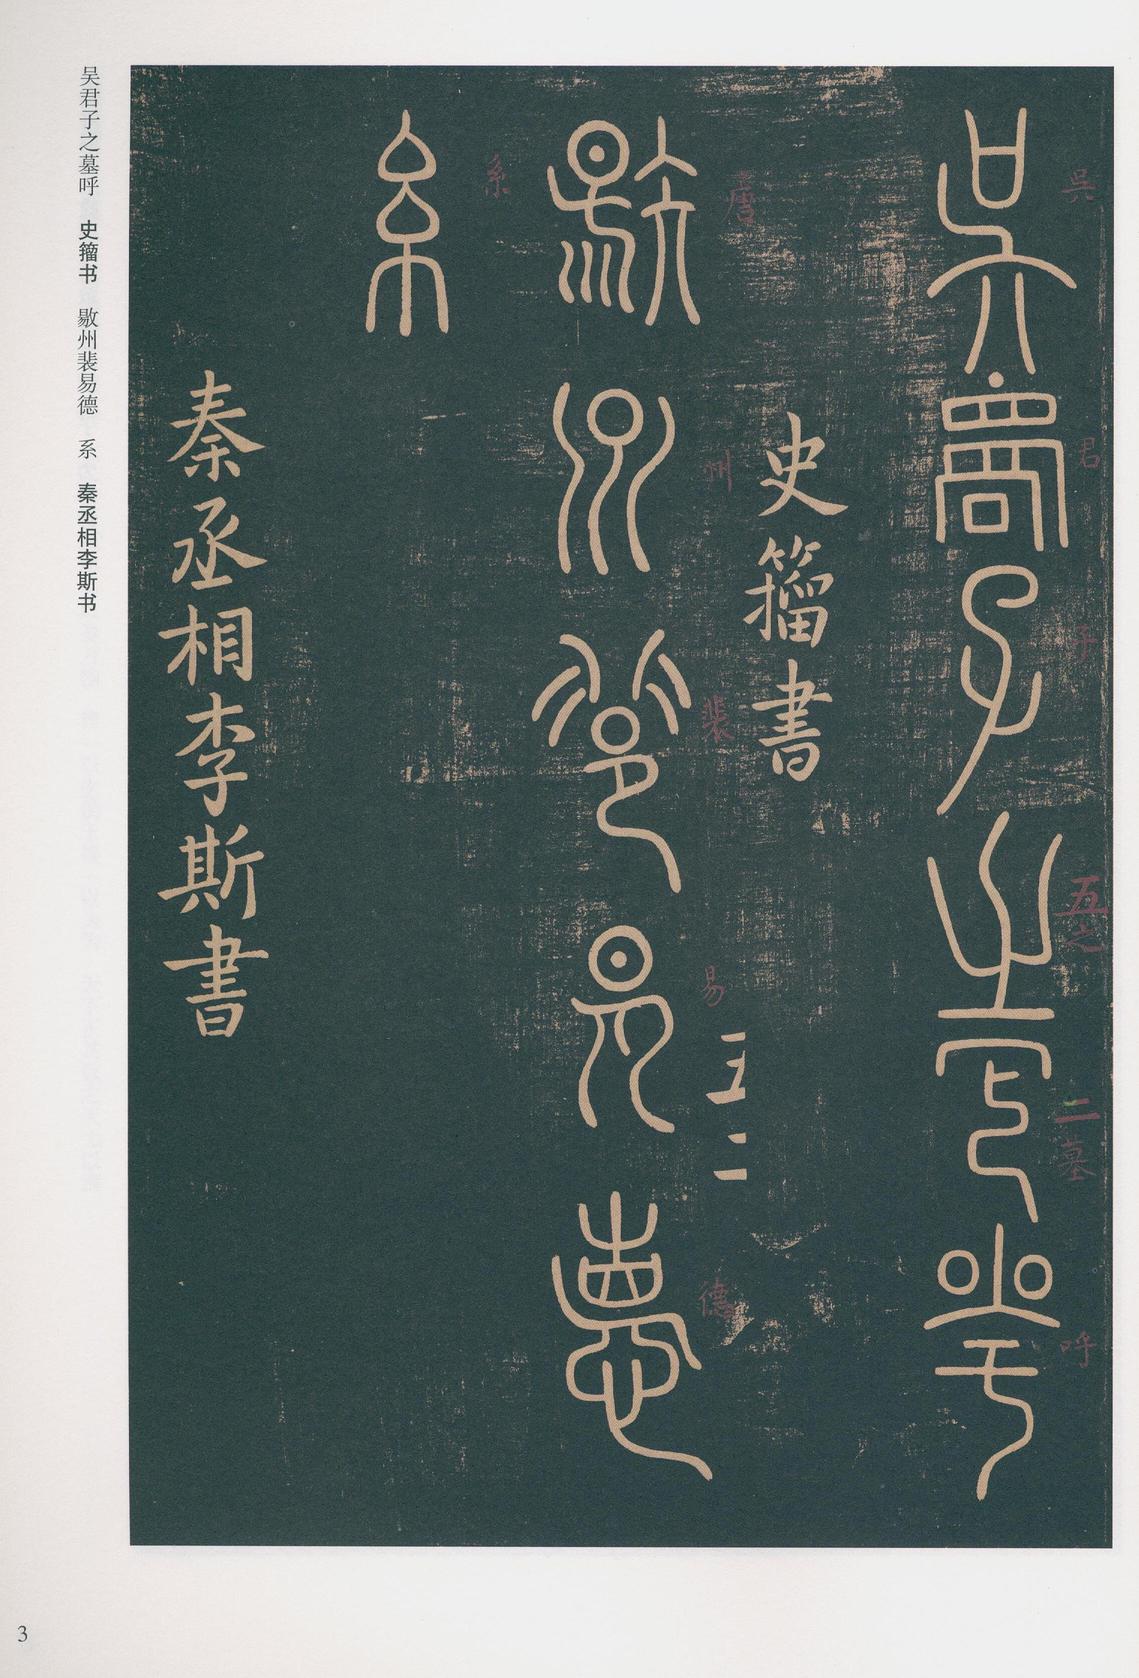 吴君子之墓呼　史籀书　敭州裴易德　系　秦丞相李斯书
吳
君
子
五之
二墓
呼
史籀書
唐
州
裴
易
五二
德
系
秦丞相李斯書
3